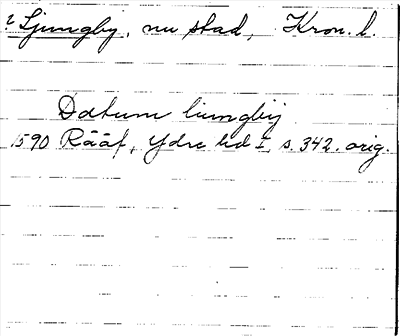 2 Ljungby, nu stad, Kron. l.
Datum liungbÿ
1590 Rääf, Ydre hd I, s. 342. orig.